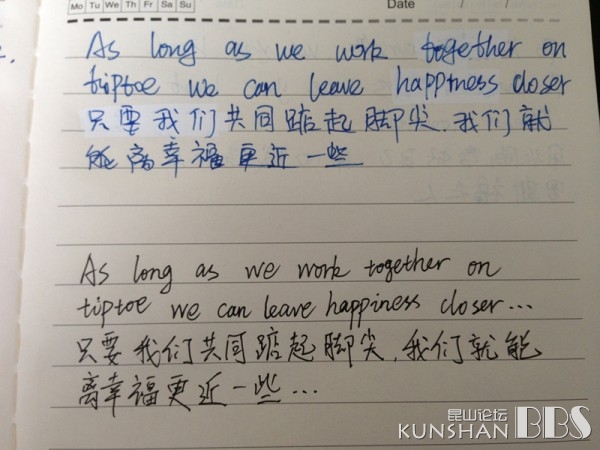 Mo Tu We Th Fr Sa Su
Date / /
As long as we work together on
tiptoe we can leave happiness closer
只要我们共同踮起脚尖,我们就
能离幸福更近一些
As long as we work together on
tiptoe we can leave happiness closer...
只要我们共同踮起脚尖,我们就能
离幸福更近一些...
昆山论坛
KUNSHAN BBS